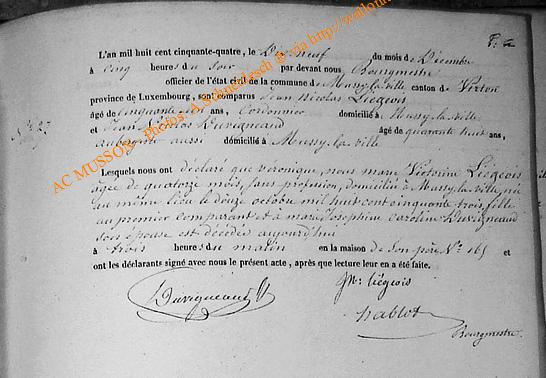 F: a
L'an mil huit cent cinquante-quatre, le Dix neuf du mois de Décembre
à Cinq heures du Soir par devant nous Bourgmestre
officier de l'état civil de la commune de Mussy-la-ville canton de Virton
province de Luxembourg, sont comparus Jean Nicolas Liegeois
âgé de cinquante ans, Cordonnier domicilié à Mussy-la-ville
et Jean Nicolas Duvigneaud âgé de quarante huit ans,
aubergiste aussi domicilié à Mussy-la-ville
N° 27
Lesquels nous ont déclaré que veronique, pour marie Victorine Liégeois
agée de quatorze mois, sans profession, domiciliée à Mussy-la-ville, née
au même lieu le douze octobre mil huit cent cinquante trois, fille
au premier comparant et à marie josephine caroline Duvigneaud
son épouse est décédée aujourd'hui
à trois heures du matin en la maison de son père N° 165 et
ont les déclarants signé avec nous le présent acte, après que lecture leur en a été faite.
Duvigneaud jn: liégeois
nablot
Bourgmestre.
AC MUSSON - Photos A. Schneidesch @ via http://wallon